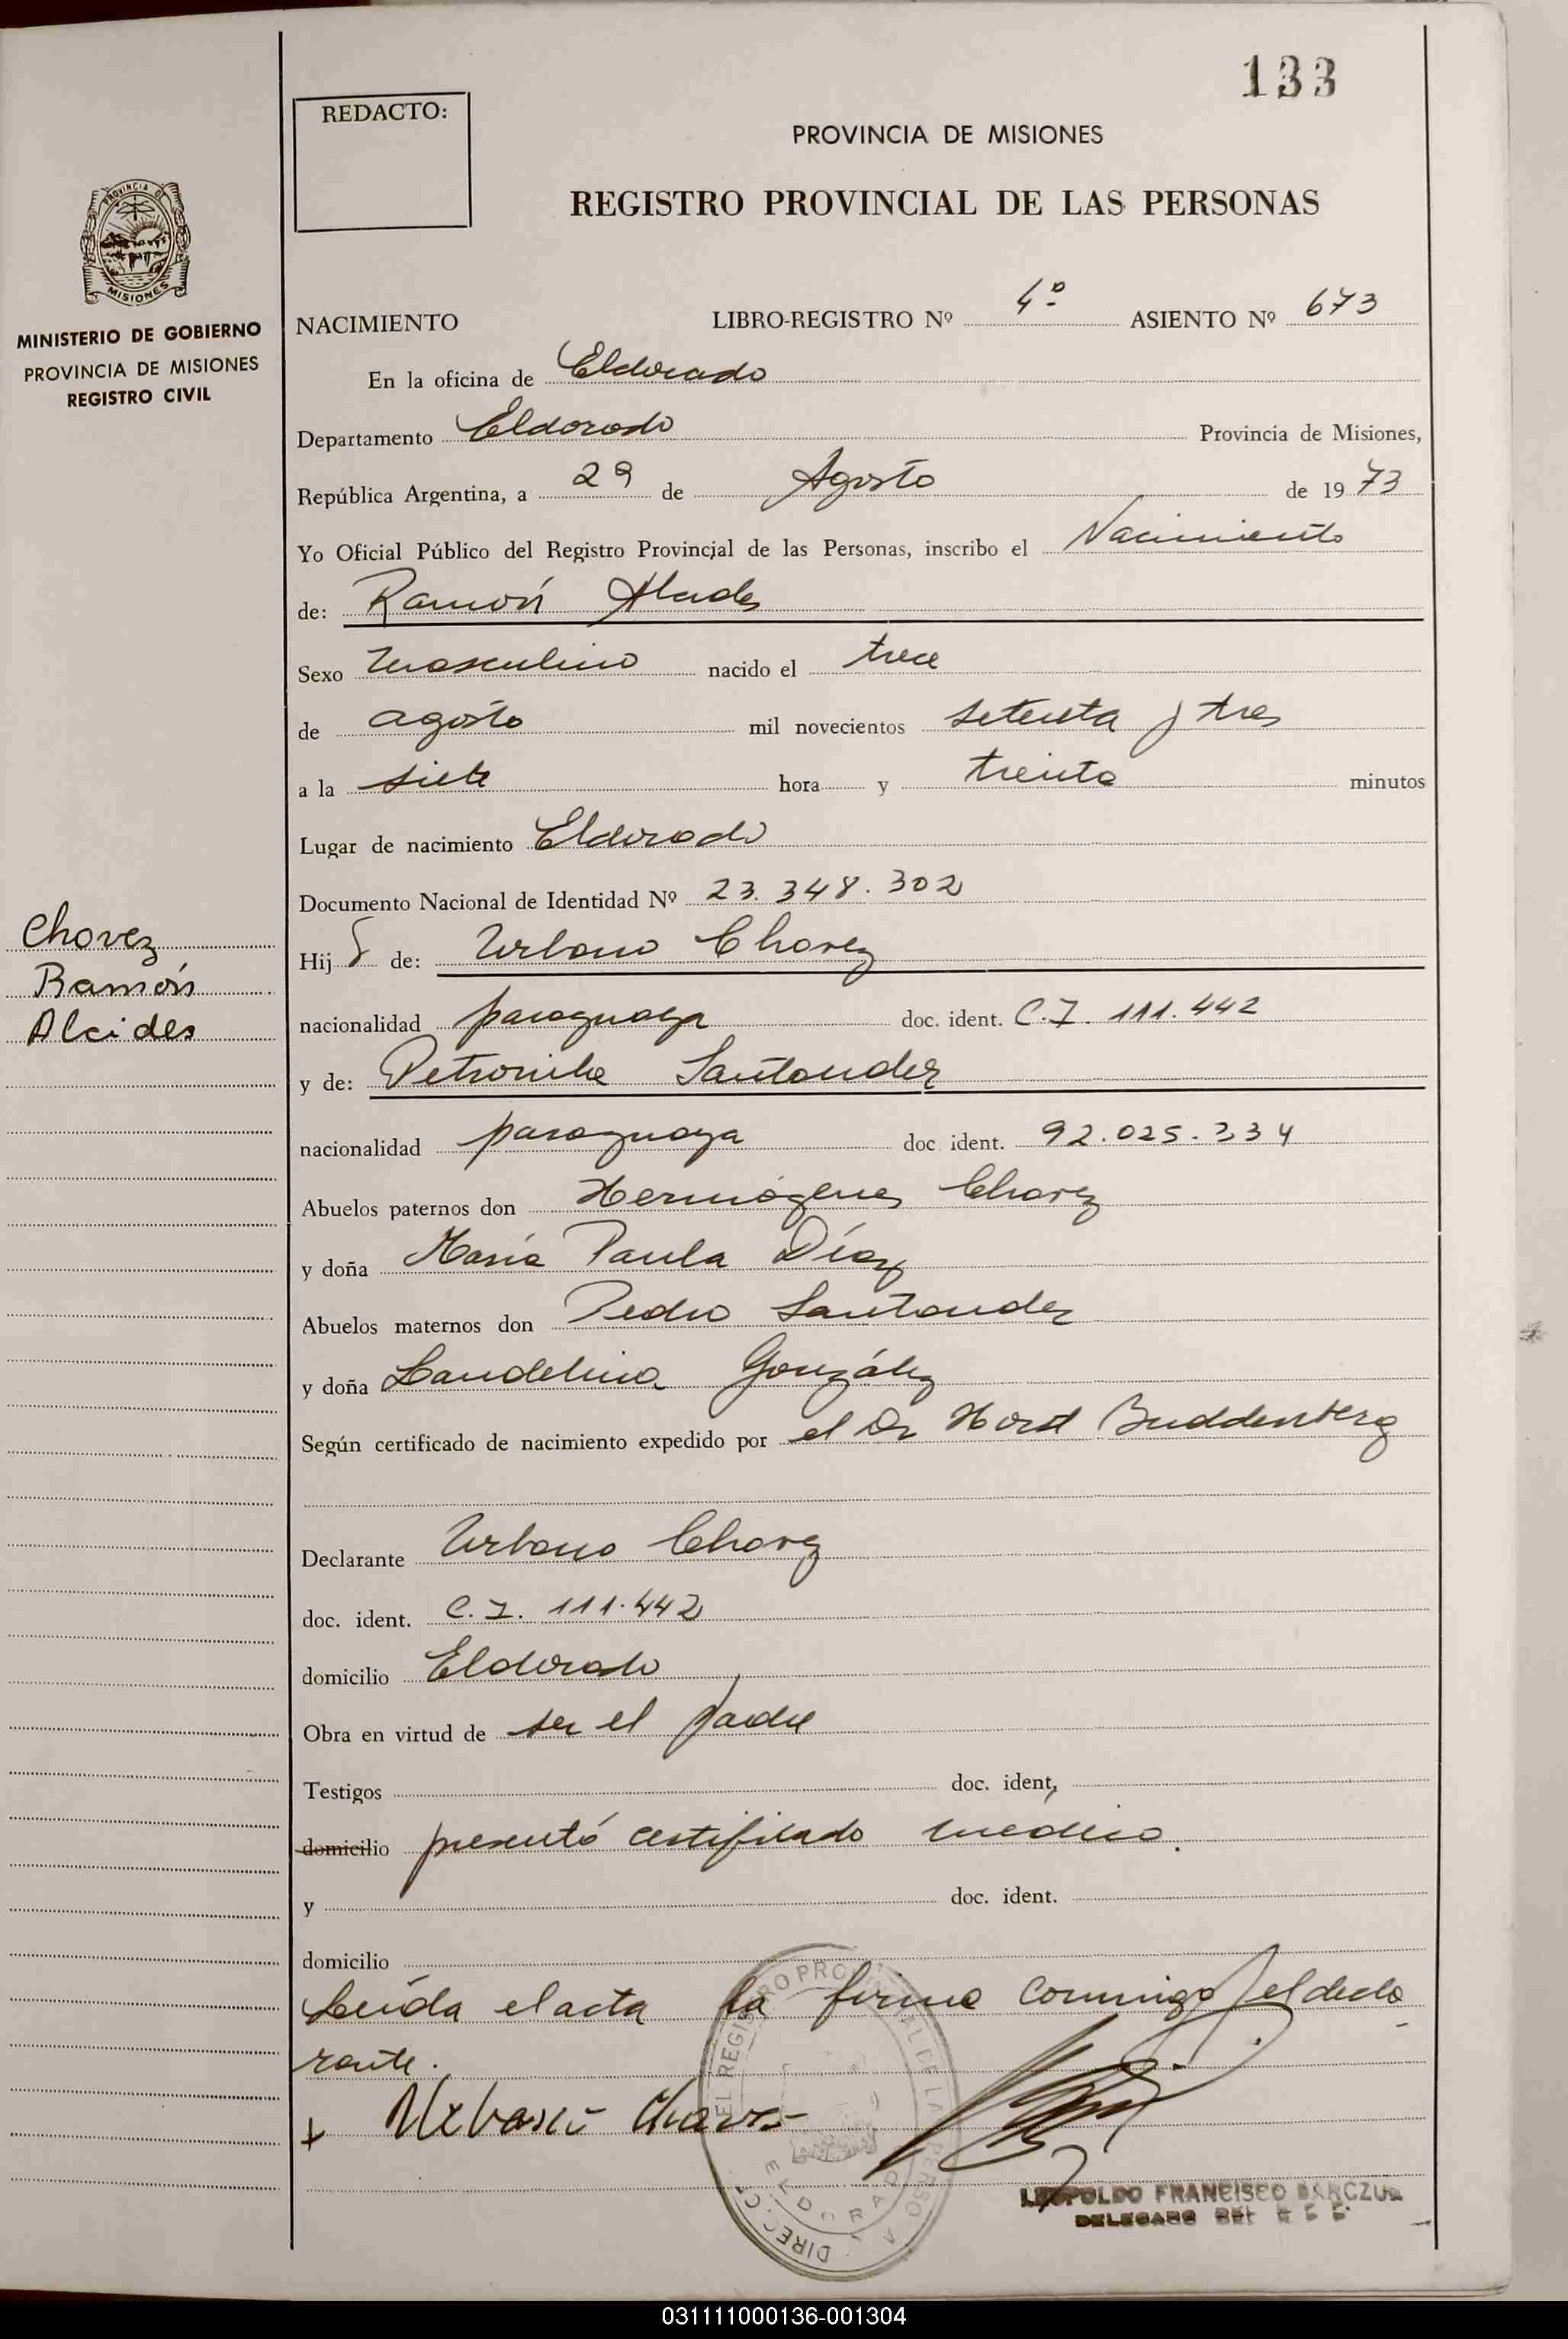 133
REDACTO:
PROVINCIA DE MISIONES
REGISTRO PROVINCIAL DE LAS PERSONAS
PROVINCIA DE
MISIONES
MINISTERIO DE GOBIERNO
PROVINCIA DE MISIONES
REGISTRO CIVIL
NACIMIENTO LIBRO-REGISTRO Nº 4º ASIENTO Nº 673
En la oficina de Eldorado
Departamento Eldorado Provincia de Misiones,
República Argentina, a 29 de Agosto de 1973
Yo Oficial Público del Registro Provincial de las Personas, inscribo el Nacimiento
de: Ramón
Sexo masculino nacido el trece
de agosto mil novecientos setenta y tres
a la siete hora y treinta minutos
Lugar de nacimiento Eldorado
Documento Nacional de Identidad Nº 23.348.302
Chovez
Ramón
Alcides
Hijo de: Urbano Chavez
nacionalidad paraguaya doc. ident. C.I. 111.442
y de: Petronila Santander
nacionalidad paraguaya doc. ident. 92.025.334
Abuelos paternos don Hermógenes Chavez
y doña María Paula Díaz
Abuelos maternos don Pedro Santander
y doña Candelina González
Según certificado de nacimiento expedido por el Dr Horst Buddenberg
Declarante Urbano Chavez
doc. ident. C.I. 111.442
domicilio Eldorado
Obra en virtud de ser el padre
Testigos doc. ident,
domicilio presentó certificado médico.
y doc. ident.
domicilio
Leída el acta la firma conmigo el decla
rante.
Urbano Chavez
ELDORADO
LEOPOLDO FRANCISCO
DELEGADO DEL
031111000136-001304